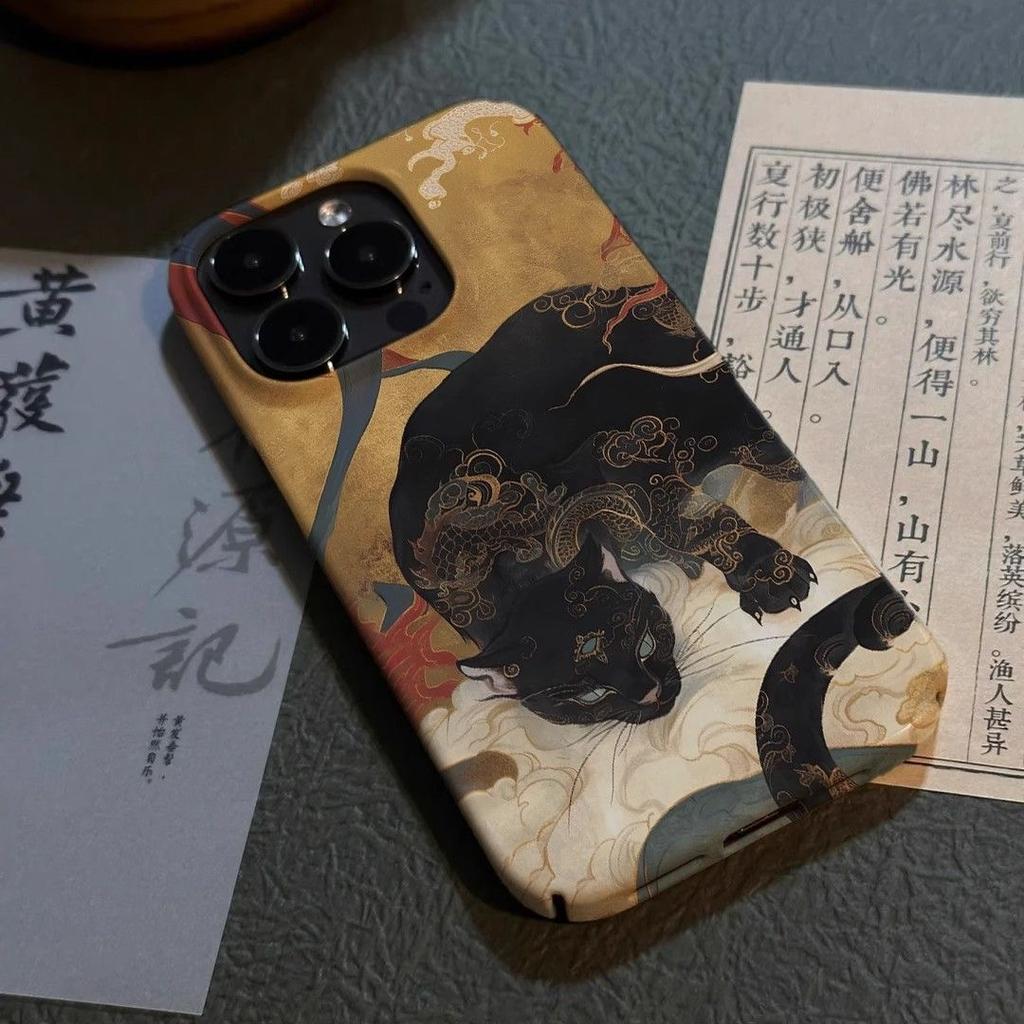 草鲜美,落英缤纷。渔人甚异
之,复前行,欲穷其林。
林尽水源,便得一山,山有
佛若有光。
便舍船,从口入。
初极狭,才通人。
复行数十步,豁
源記
黄发垂髫,
并怡然自乐。
黄發